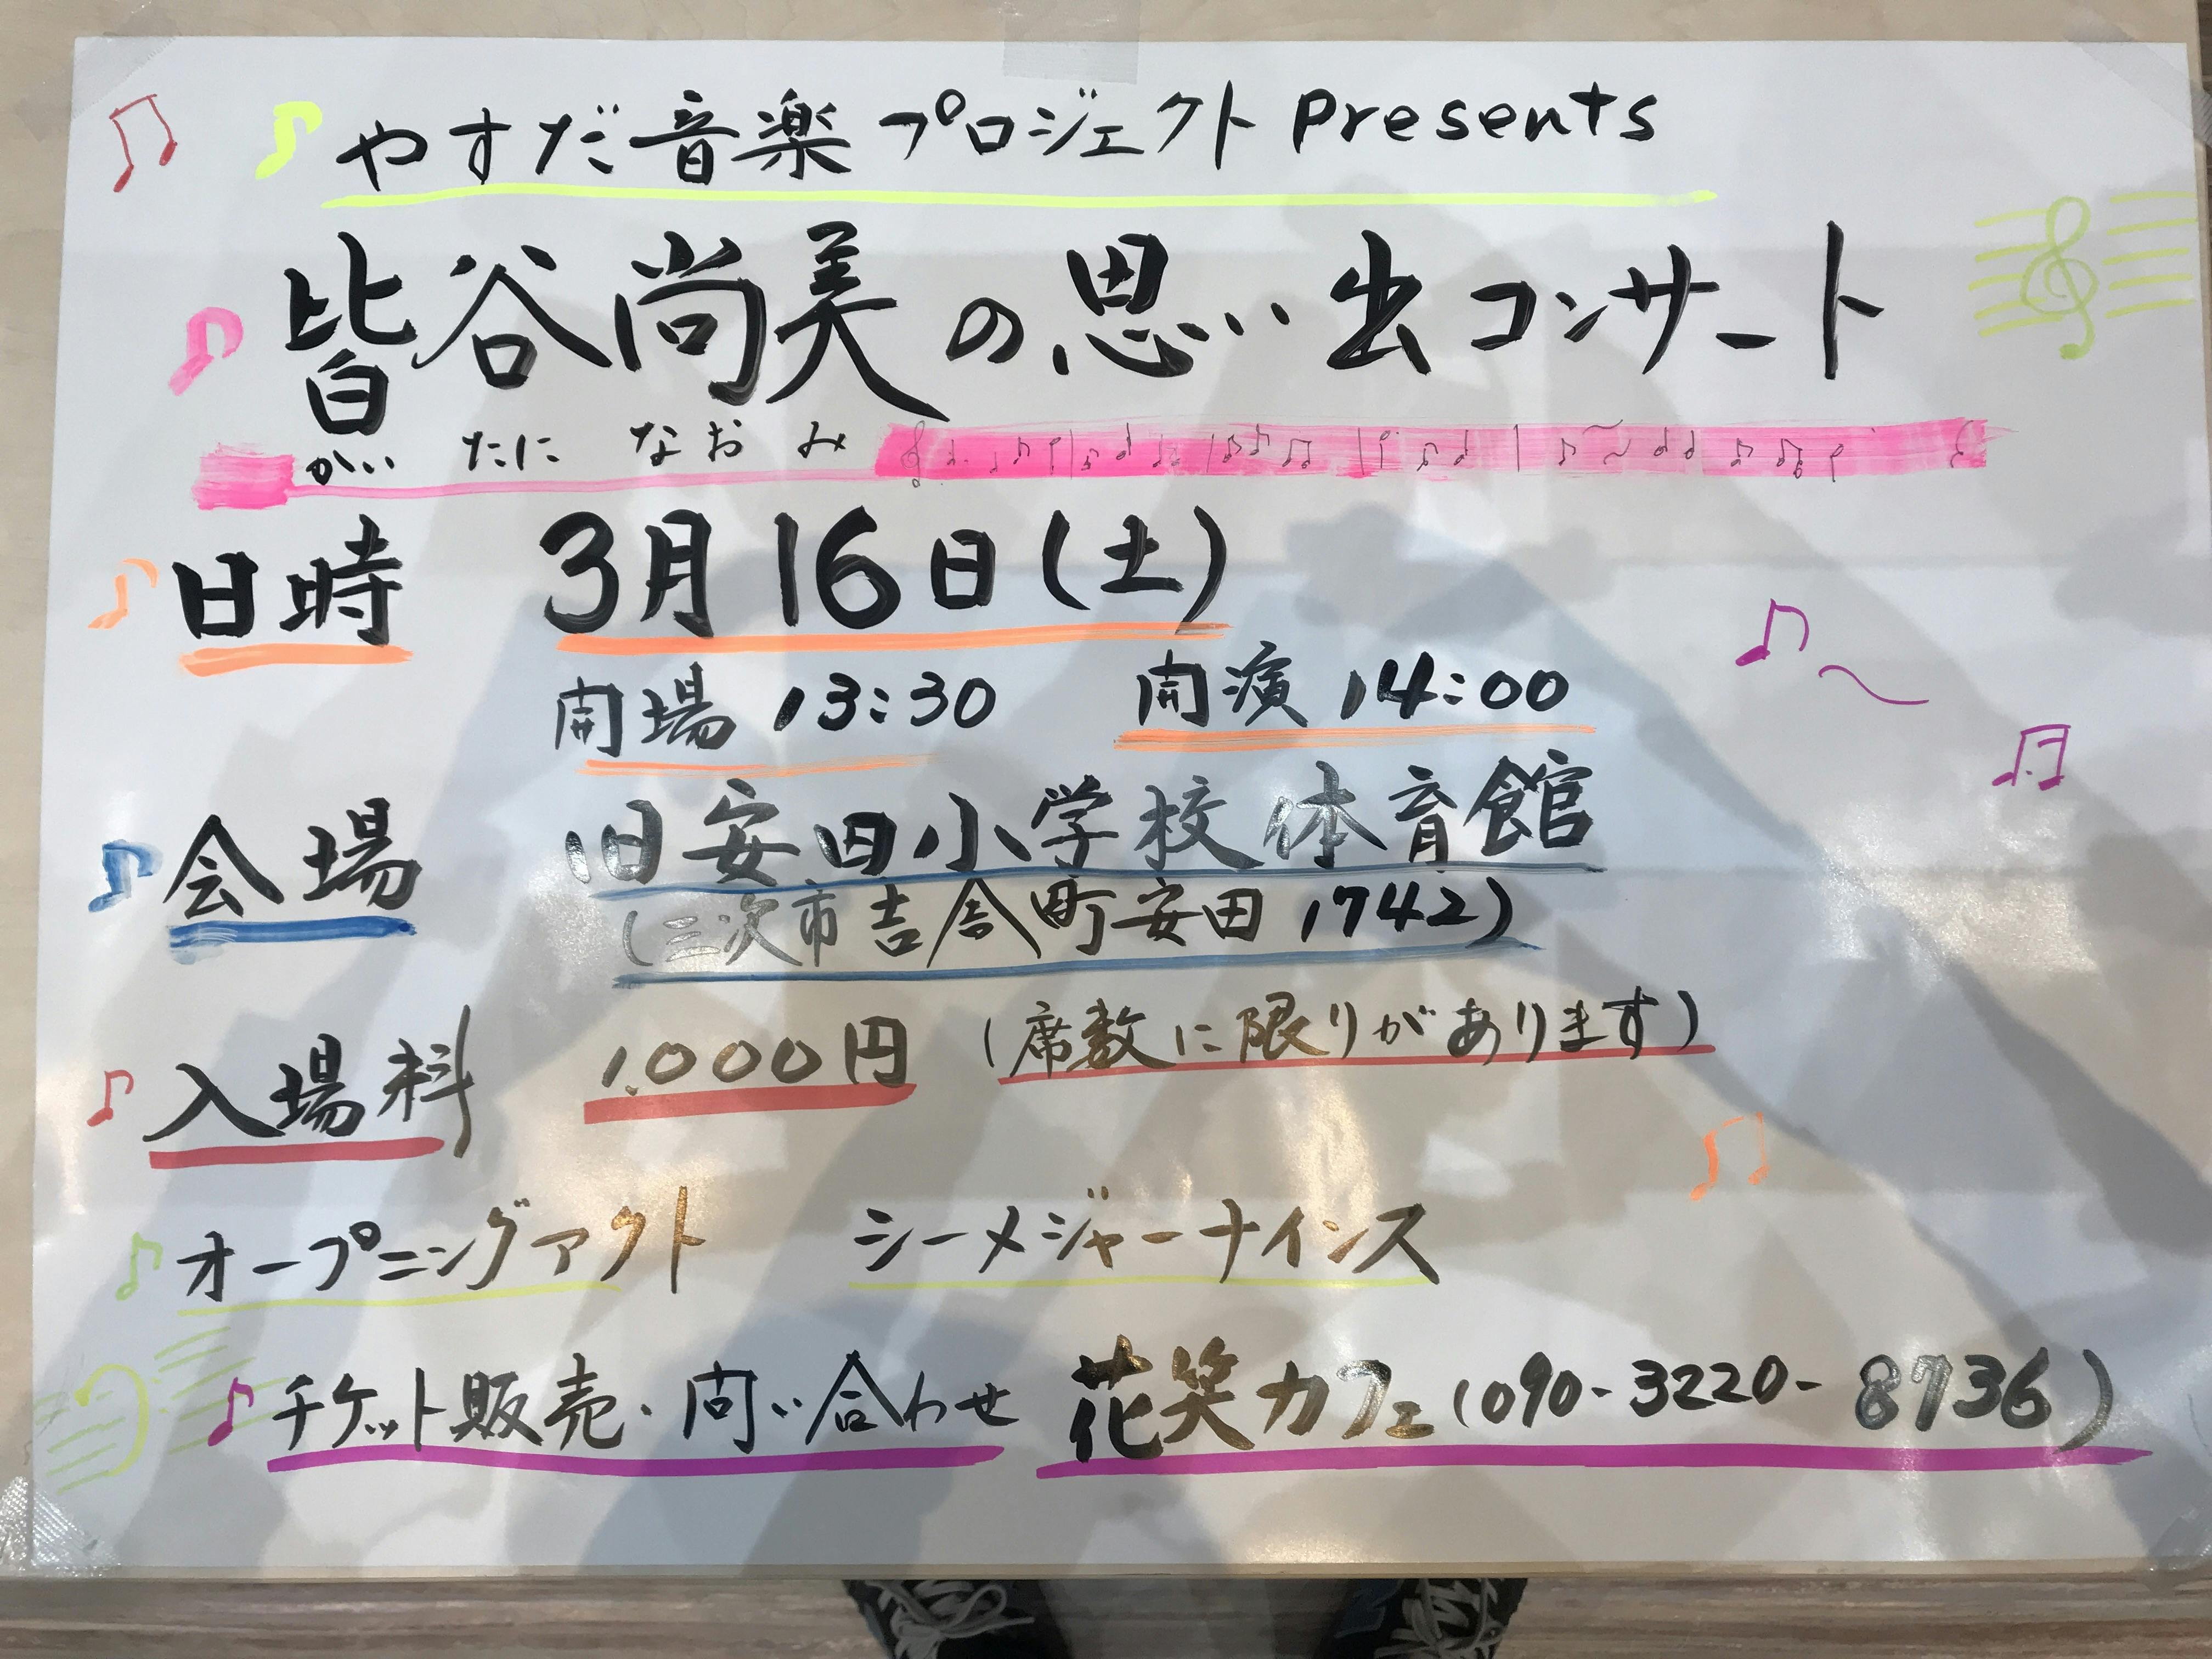 やすだ音楽プロジェクト Presents
皆谷尚美の思い出コンサート
かい たに なおみ
日時 3月16日(土)
開場 13:30 開演 14:00
会場 旧安田小学校体育館
(三次市吉舎町安田1742)
入場料 1,000円 (席数に限りがあります)
オープニングアクト シーメジャーナインス
チケット販売・問い合わせ 花笑カフェ(090-3220-8736)